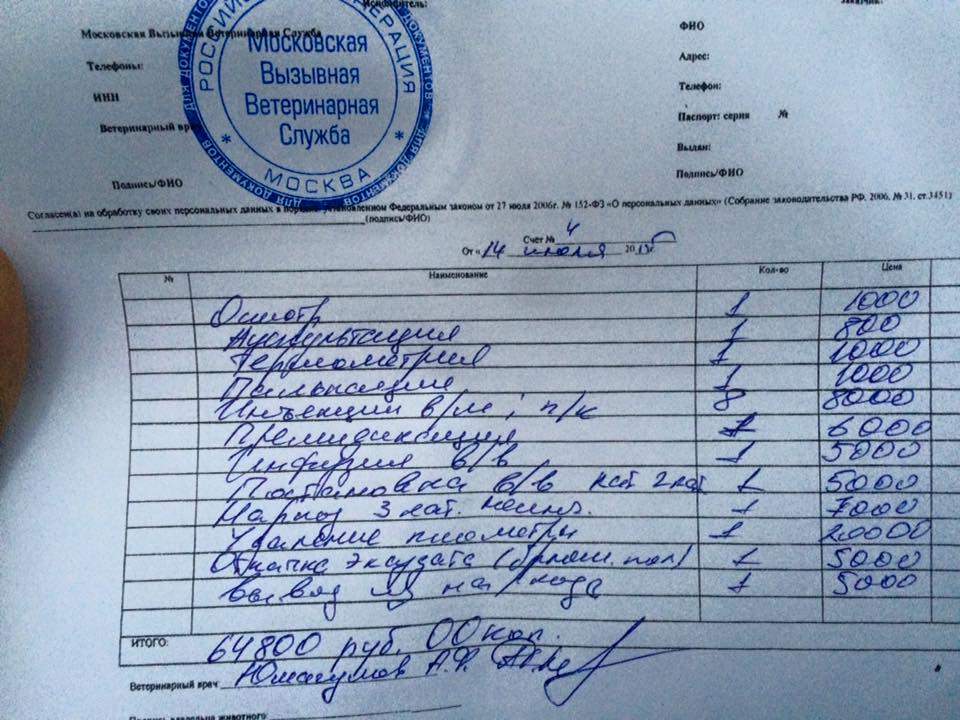 Исполнитель:
Заказчик:
Московская Вызывная Ветеринарная Служба
ФИО
Телефоны:
Адрес:
ИНН
Телефон:
Ветеринарный врач
Паспорт: серия №
Выдан:
Подпись/ФИО
Подпись/ФИО
ДЛЯ ДОКУМЕНТОВ
РОССИЙСКАЯ ФЕДЕРАЦИЯ
Московская
Вызывная
Ветеринарная
Служба
* МОСКВА *
Согласен(а) на обработку своих персональных данных в порядке установленном Федеральным законом от 27 июля 2006г. № 152-ФЗ «О персональных данных» (Собрание законодательства РФ, 2006, № 31, ст.3451)
(подпись/ФИО)
Счет № 4
От «14 июля 2015г
№ Наименование Кол-во Цена
Осмотр 1 1000
Аускультация 1 800
Термометрия 1 1000
Пальпация 1 1000
Инъекции в/м; п/к 8 8000
Премидикация 1 6000
Инфузия в/в 1 5000
Постановка в/в кат 2 кат 1 5000
Наркоз 3 кат. 1 7000
Удаление пиометры 1 20000
Откачка эксудата (брюш. пол) 1 5000
Вывод из наркоза 1 5000
ИТОГО: 64800 руб. 00 коп.
Ветеринарный врач А.Ф.
Подпись владельца животного